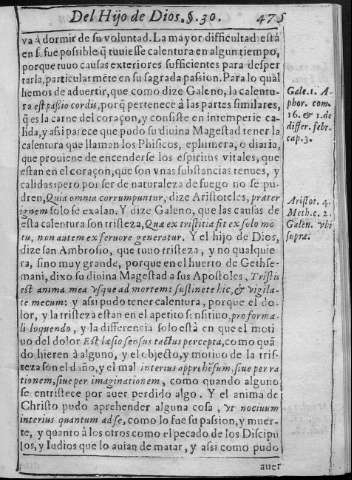 Del Hijo de Dios. §. 30. 475
va à dormir de su voluntad. La mayor dificultad està
en si fue possible q̃ tuuiesse calentura en algun tiempo,
porque tuuo causas exteriores sufficientes para desper
tarla, particularmẽte en su sagrada passion. Para lo qual
hemos de aduertir, que como dize Galeno, la calentu-
ra est passio cordis, porq̃ pertenece à las partes similares,
q̃ es la carne del coraçon, y consiste en intemperie ca-
lida, y assi parece que pudo su diuina Magestad tener la
calentura que llamen los Phisicos, ephimera, o diaria,
que prouiene de encenderse los espiritus vitales, que
estan en el coraçon, que son vnas substancias tenues, y
calidas: pero por ser de naturaleza de fuego no se pu-
dren, Quia omnia corrumpuntur, dize Aristoteles, præter
ignem solo se exalan. Y dize Galeno, que las causas de
esta calentura son tristeza, Qua ex tristitia fit ex solo mo-
tu, non autem ex feruore generatur. Y el hijo de Dios,
dize san Ambrosio, que tuuo tristeza, y no qualquie-
ra, sino muy grande, porque en el huerto de Gethse-
mani, dixo su diuina Magestad à sus Apostoles, Tristis
est anima mea vsque ad mortem: sustinete hic, & vigila-
te mecum: y assi pudo tener calentura, porque el do-
lor, y la tristeza estan en el apetito sensitiuo, pro forma-
li loquendo, y la differencia solo està en que el moti
uo del dolor Est læsio sensus tactus percepta, como quã
do hieren à alguno, y el objecto, y motiuo de la tris-
teza son el daño, y el mal interius apprehẽsum, siue per ra
tionem, siue per imaginationem, como quando alguno
se entristece por auer perdido algo. Y el anima de
Christo pudo aprehender alguna cosa, Vt nociuum
interius quantum ad se, como lo fue su passion, y muer-
te, y quanto à los otros como el pecado de los Discipu
los, y Iudios que lo auian de matar, y assi como pudo
auer
Gale. 1. A-
phor. com.
16. & 1. de
differ. febr.
cap. 3.
Aristot. 4.
Meth. c. 2.
Galen. vbi
supra.